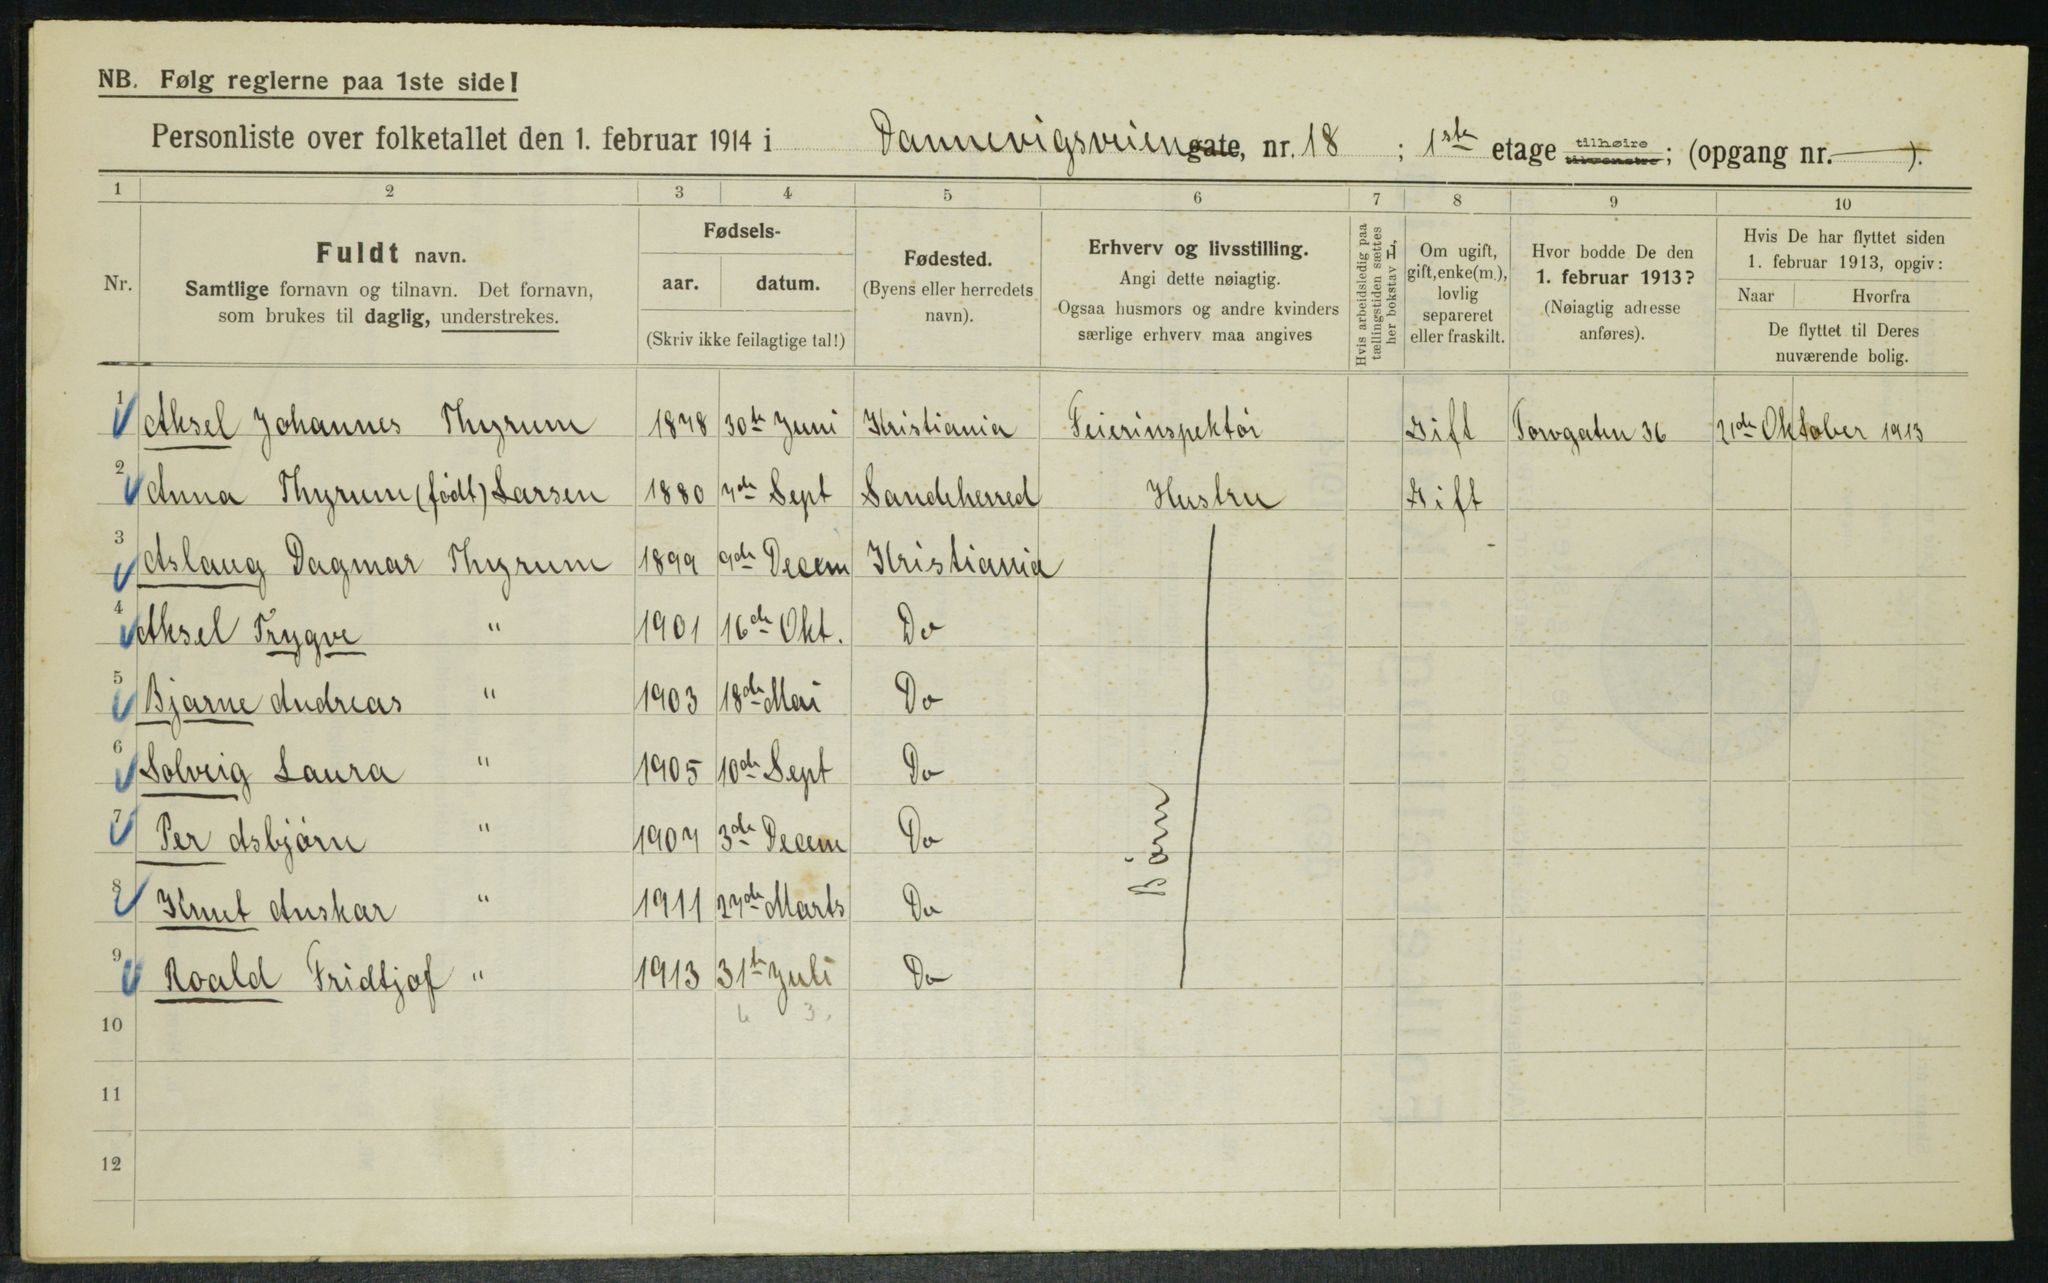 NB. Følg reglerne paa 1ste side!
Personliste over folketallet den 1. februar 1914 i Dannevigsveien gate, nr. 18 ; 1ste etage tilhøire tilvenstre; (opgang nr. — ).
1 2 3 4 5 6 7 8 9 10
Nr.
Fuldt navn.
Samtlige fornavn og tilnavn. Det fornavn,
som brukes til daglig, understrekes.
Fødsels-
aar. datum.
(Skriv ikke feilagtige tal!)
Fødested.
(Byens eller herredets
navn).
Erhverv og livsstilling.
Angi dette nøiagtig.
Ogsaa husmors og andre kvinders
særlige erhverv maa angives
Hvis arbeidsledig paa
tællingstiden sættes
her bokstav L.
Om ugift,
gift, enke(m.),
lovlig
separeret
eller fraskilt.
Hvor bodde De den
1. februar 1913?
(Nøiagtig adresse
anføres).
Hvis De har flyttet siden
1. februar 1913, opgiv:
Naar Hvorfra
De flyttet til Deres
nuværende bolig.
1 Aksel Johannes Thyrum 1878 30te Juni Kristiania Feierinspektör Gift Torvgaten 36 21de Oktober 1913
2 Anna Thyrum (födt) Larsen 1880 7de Sept Sandeherred Hustru Gift
3 Aslaug Dagmar Thyrum 1899 9de Decem Kristiania
4 Aksel Trygve " 1901 16de Okt. Do
5 Bjarne Andreas " 1903 18de Mai Do
6 Solveig Laura " 1905 10de Sept Do
7 Per Asbjörn " 1907 3de Decem Do
Börn
8 Knut Anskar " 1911 27de Marts Do
9 Roald Fridtjof " 1913 31te Juli Do
10
11
12